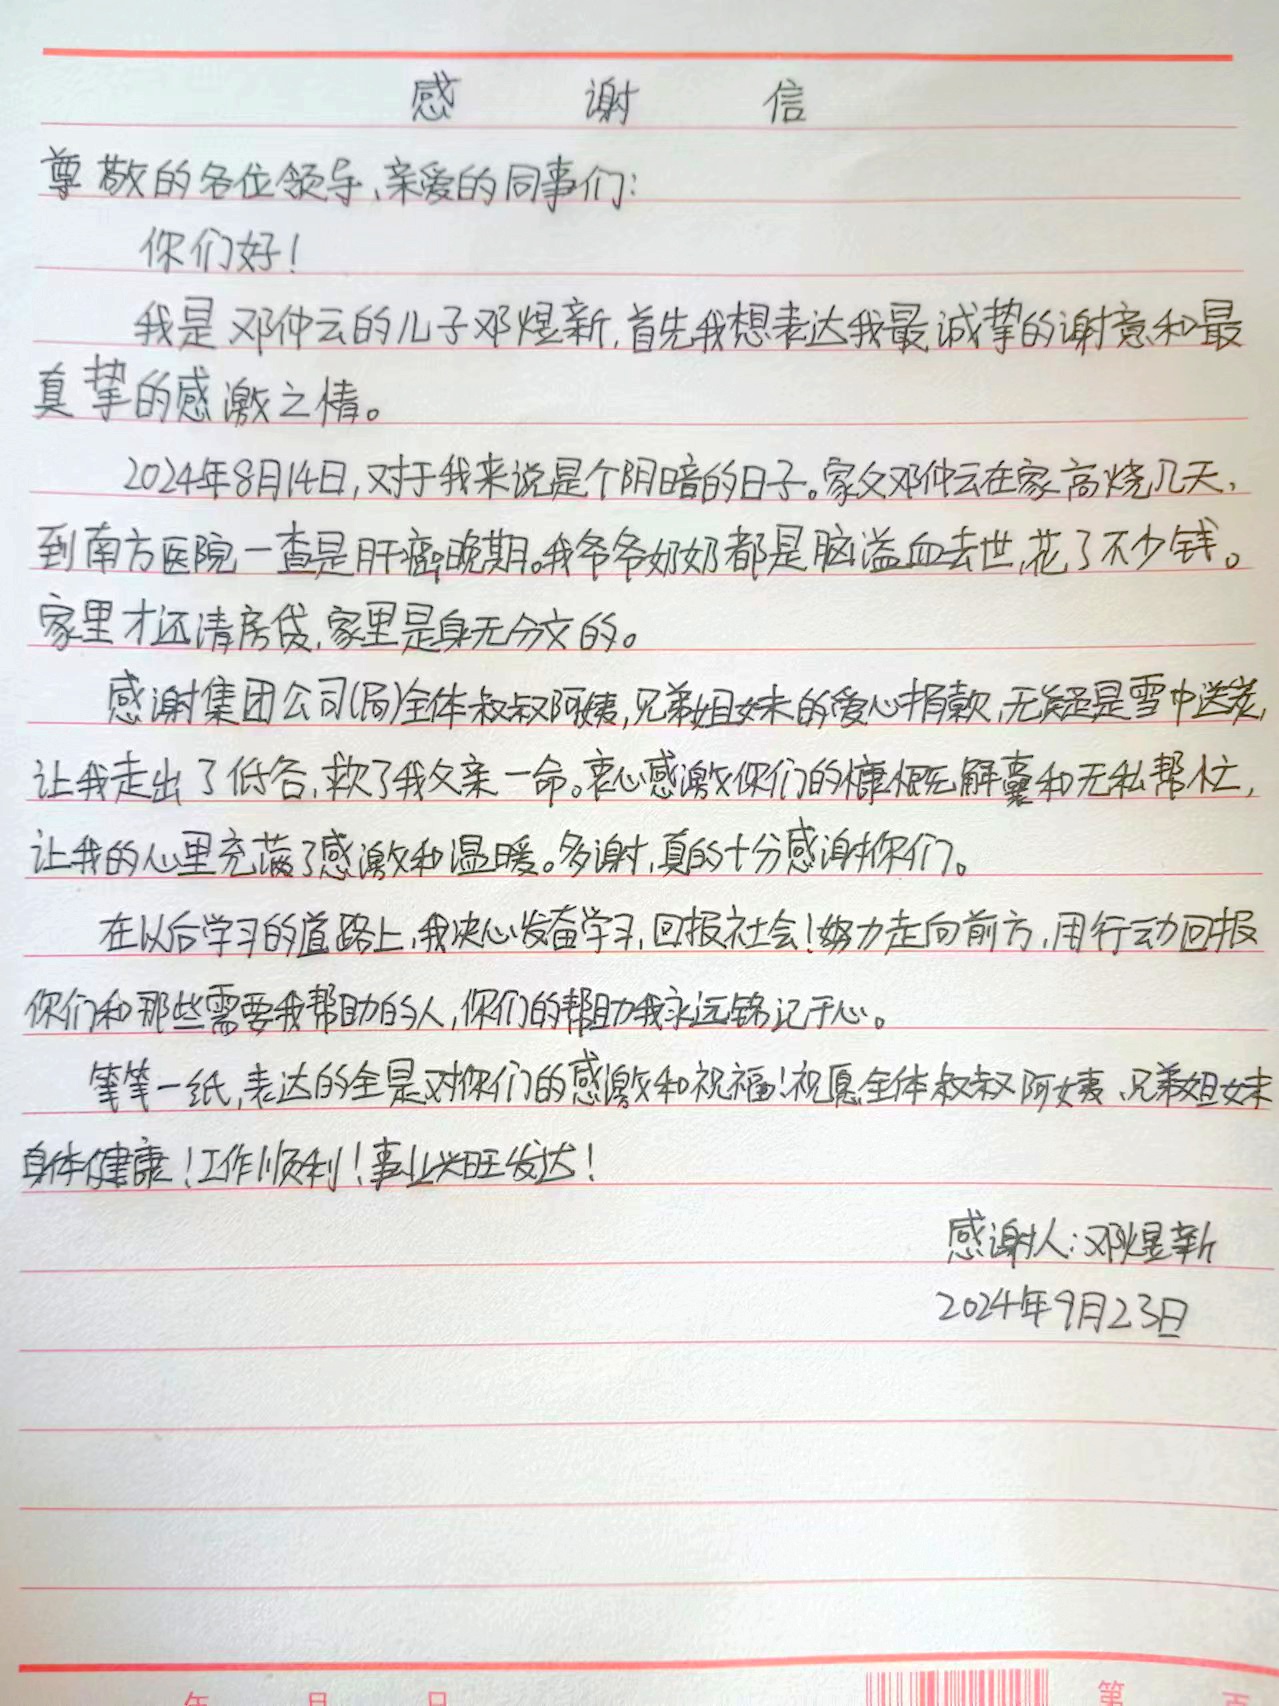 感谢信
尊敬的各位领导、亲爱的同事们：
你们好！
我是邓仲云的儿子邓煜新，首先我想表达我最诚挚的谢意和最
真挚的感激之情。
2024年8月14日，对于我来说是个阴暗的日子。家父邓仲云在家高烧几天，
到南方医院一查是肝癌晚期。我爷爷奶奶都是脑溢血去世，花了不少钱。
家里才还清房贷，家里是身无分文的。
感谢集团公司(局)全体叔叔阿姨，兄弟姐妹的爱心捐款，无疑是雪中送炭，
让我走出了低谷，救了我父亲一命。衷心感激你们的慷慨解囊和无私帮忙，
让我的心里充满了感激和温暖。多谢，真的十分感谢你们。
在以后学习的道路上，我决心发奋学习，回报社会！努力走向前方，用行动回报
你们和那些需要我帮助的人，你们的帮助我永远锦记于心。
笔笔一纸，表达的全是对你们的感激和祝福！祝愿全体叔叔阿姨、兄弟姐妹
身体健康！工作顺利！事业兴旺发达！
感谢人：邓煜新
2024年9月23日
年 月 日
第 页